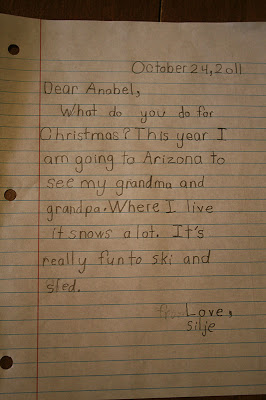 October 24, 2011
Dear Anabel,
What do you do for
Christmas? This year I
am going to Arizona to
see my grandma and
grandpa. Where I live
it snows a lot. It's
really fun to ski and
sled.
Love,
Silje